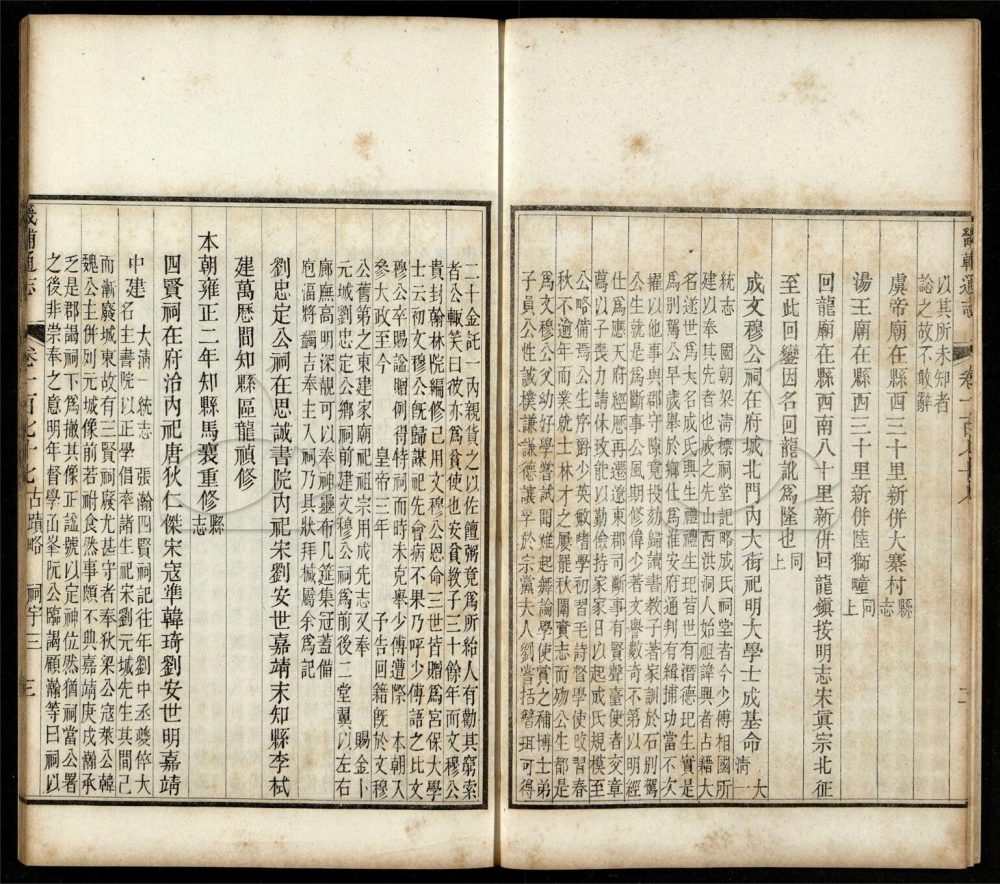 畿輔通志 卷一百七十七 二
以其所未知者
諡之故不敢辭
虞帝廟在縣西三十里新併大寨村縣志
湯王廟在縣西三十里新併陸獅疃同上
回龍廟在縣西南八十里新併回龍鎮按明志宋眞宗北征
至此回鑾因名回龍訛爲隆也同上
成文穆公祠在府城北門內大街祀明大學士成基命大淸一
統志 國朝梁淸標祠堂記略成氏祠堂者今少傅相國所
建以奉其先者也成之先山西洪洞人始祖諱興者占籍大
名遂世爲大名成氏興生禮禮生玘皆世有潛德玘生實是
爲別駕公早歲舉於鄉仕爲淮安府通判有緝捕功當不次
擢以他事與郡守隙竟投劾歸讀書教子著家訓於石別駕
公生就是爲斷事公風期修偉少著文譽數奇不第以明經
仕爲應天府經歷再遷遼東郡司斷事有賢聲臺使者交章
薦以子喪力請休致能以勤儉持家家日以起成氏規模至
公略備焉公生序爵少英敏嗜學初習毛詩督學使改習春
秋不逾年而業就士林才之屢罷秋闈賫志而歿公生都是
爲文穆公公幼好學嘗試聞雞起舞論學使賞之補博士弟
子員公性誠樸謙謙德讓孚於宗黨夫人劉嘗括簪珥可得
二十金託一內親貨之以佐饘粥竟爲所紿人有勸其窮索
者公輙笑曰彼亦爲貧使也安貧教子三十餘年而文穆公
貴封翰林院編修已用文穆公恩命三世皆贈爲宮保大學
士云初文穆公旣歸謀祀先會病不果乃呼少傅語之比文
穆公卒賜諡賵例得特祠而時未克舉少傅遭際 本朝入
參大政至今 皇帝三年 予告回籍旣於文穆
公舊第之東建家廟祀祖宗用成先志又奉 賜金卜
元城劉忠定公鄉祠前建文穆公祠爲前後二堂翼以左右
廊廡高明深靚可以奉神靈布几筵集冠蓋備
庖湢將蠲吉奉主入祠乃具狀拜椷屬余爲記
劉忠定公祠在思誠書院內祀宋劉安世嘉靖末知縣李栻
建萬歷間知縣區龍禎修
本朝雍正二年知縣馬襄重修縣志
四賢祠在府治內祀唐狄仁傑宋寇準韓琦劉安世明嘉靖
中建 大淸一統志 張瀚四賢祠記往年劉中丞夔倅大
名主書院以正學倡率諸生祀宋劉元城先生其間已
而漸廢城東故有三賢祠廢尤甚守者奉狄梁公寇萊公韓
魏公主併列元城像前若耐食然事頗不典嘉靖庚戌瀚承
乏是郡謁祠下爲撤其像正諡號以定神位然猶祠當公署
之後非崇奉之意明年督學函峯阮公臨謁顧瀚等曰祠以
畿輔通志 卷一百七十七 古蹟略 祠宇三 三